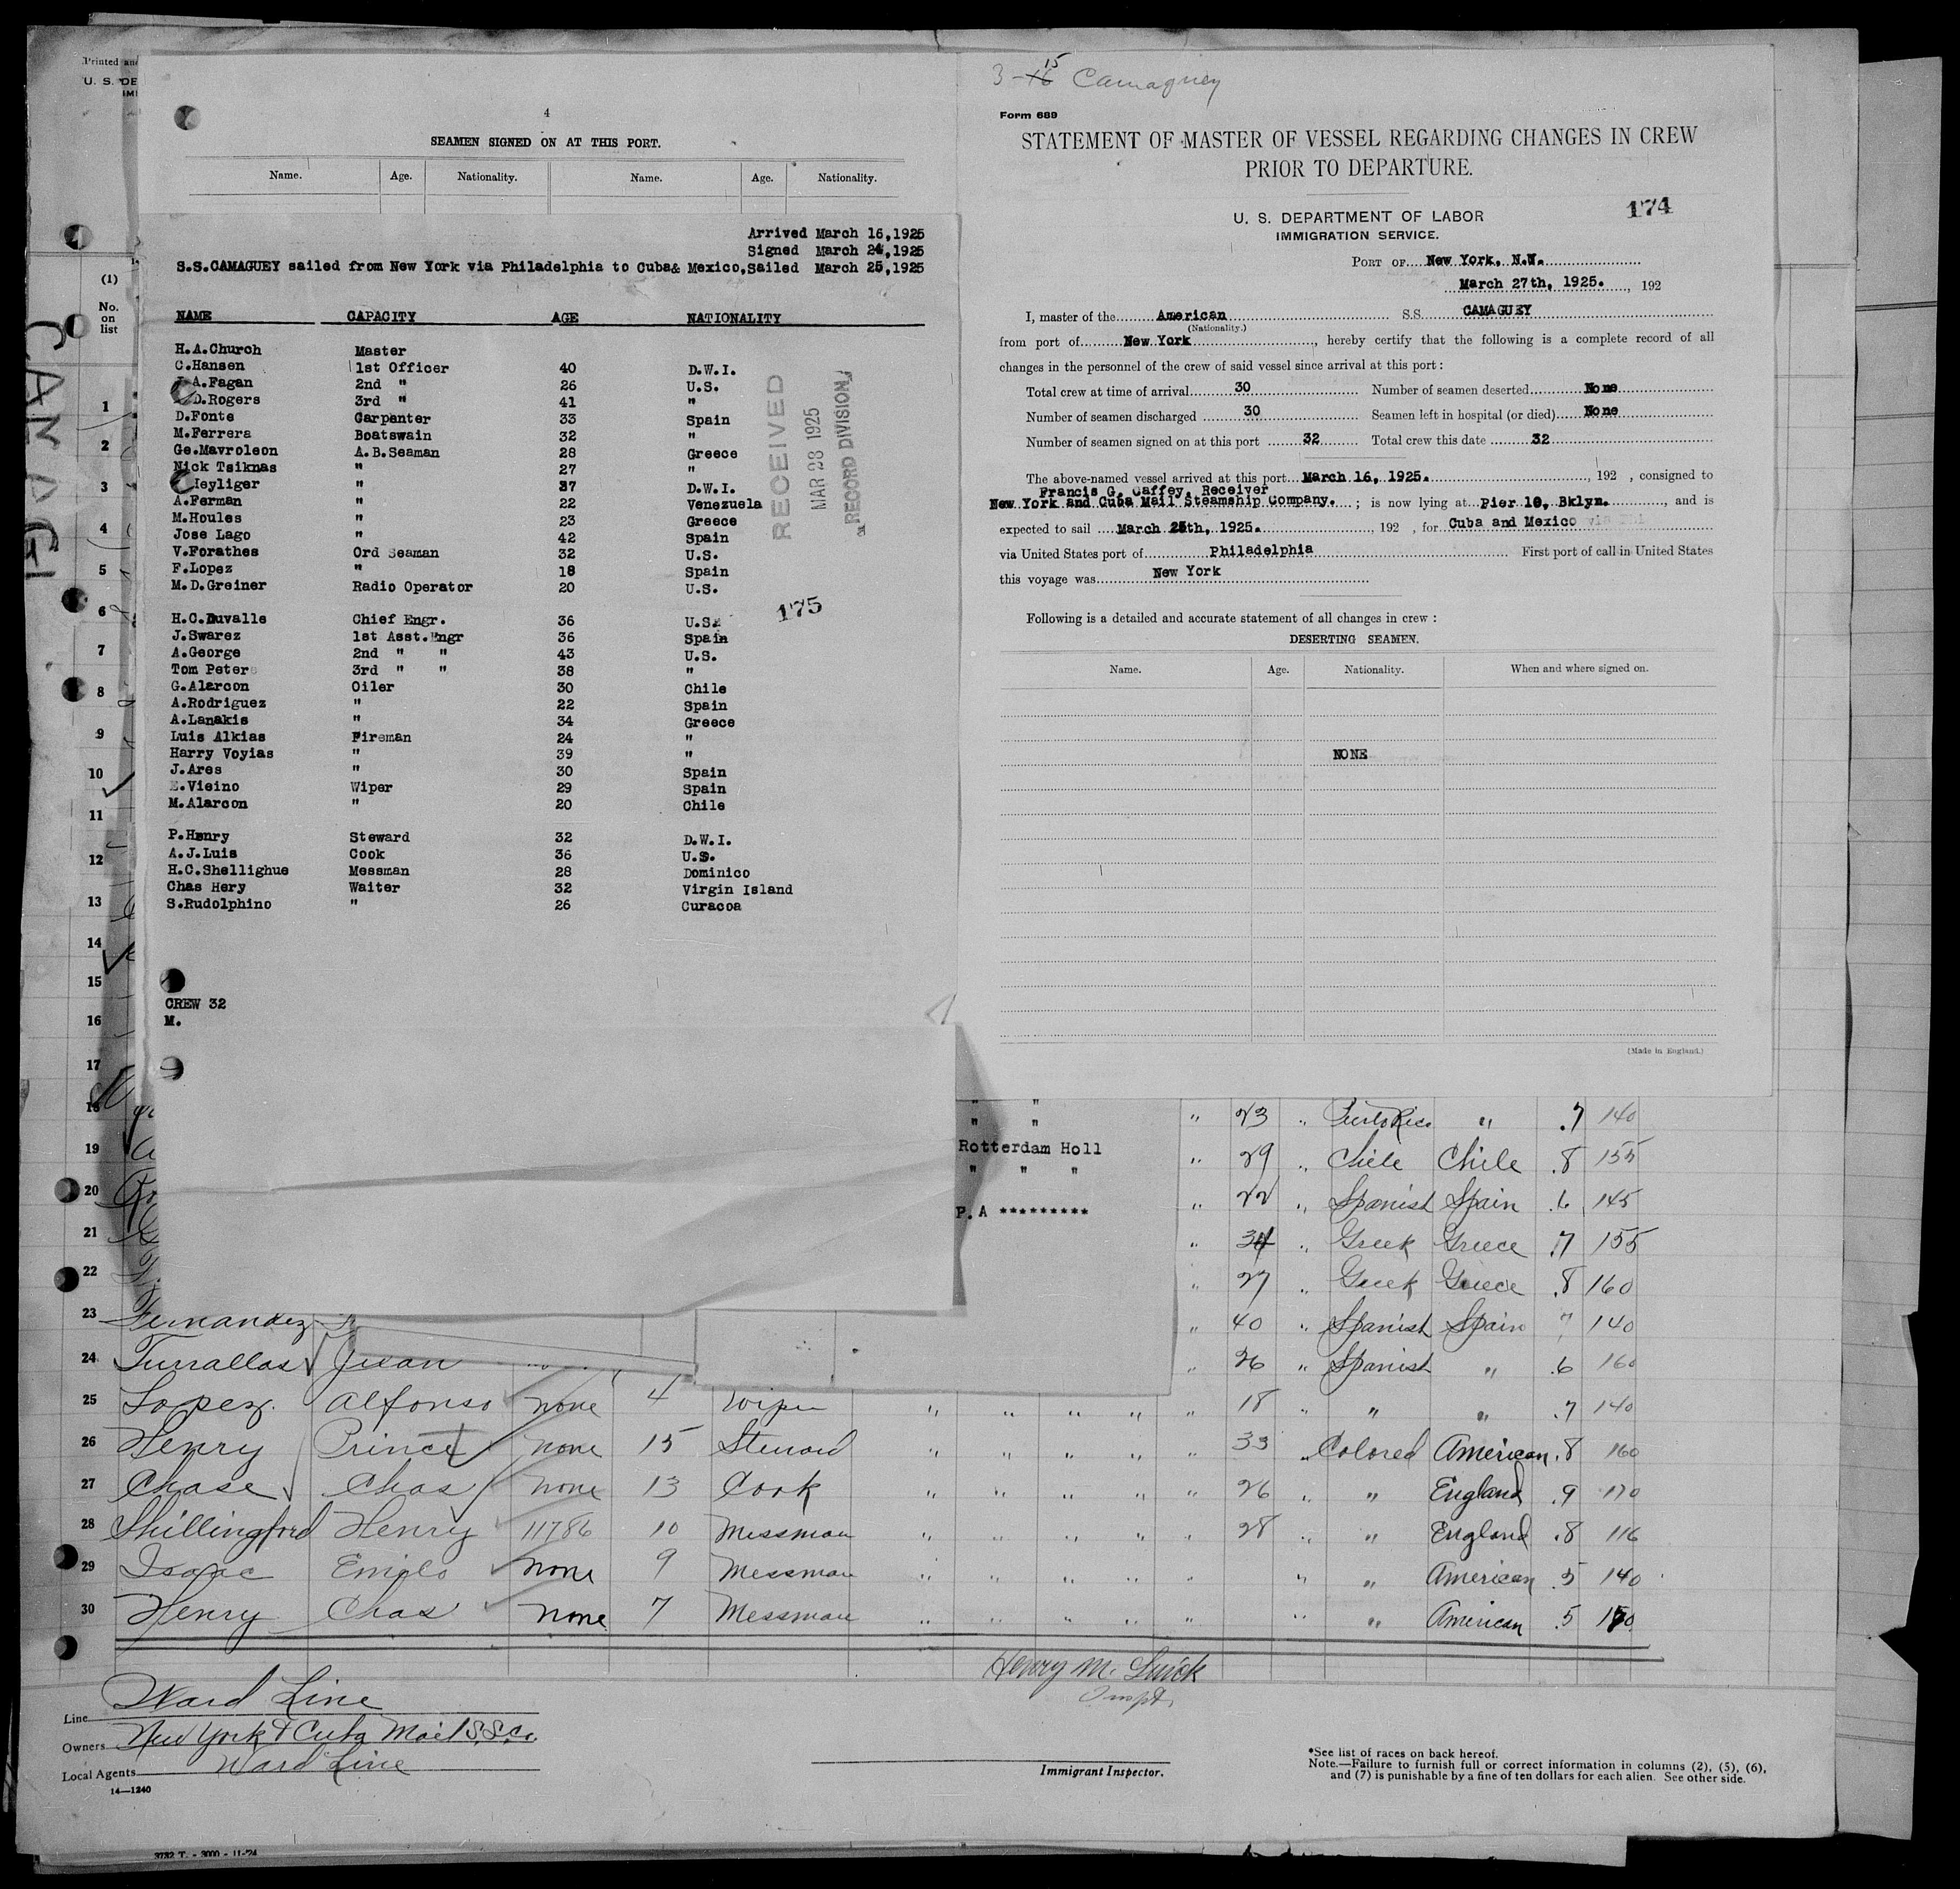 Printed and
U. S. DE
IMI
4
SEAMEN SIGNED ON AT THIS PORT.
Name. Age. Nationality. Name. Age. Nationality.
Arrived March 16,1925
Signed March 24,1925
S.S.CAMAGUEY sailed from New York via Philadelphia to Cuba& Mexico,Sailed March 25,1925
NAME CAPACITY AGE NATIONALITY
H.A.Church Master
C.Hansen 1st Officer 40 D.W.I.
A.Fagan 2nd " 26 U.S.
D.Rogers 3rd " 41 "
D.Fonte Carpenter 33 Spain
M.Ferrera Boatswain 32 "
Ge.Mavroleon A.B.Seaman 28 Greece
Nick Tsiknas " 27 "
Heyliger " 37 D.W.I.
A.Ferman " 22 Venezuela
M.Houles " 23 Greece
Jose Lago " 42 Spain
V.Forathes Ord Seaman 32 U.S.
F.Lopez " 18 Spain
M.D.Greiner Radio Operator 20 U.S.
H.C.Duvalle Chief Engr. 36 U.S.
J.Swarez 1st Asst.Engr 36 Spain
A.George 2nd " " 43 U.S.
Tom Peters 3rd " " 38 "
G.Alarcon Oiler 30 Chile
A.Rodriguez " 22 Spain
A.Lanakis " 34 Greece
Luis Alkias Fireman 24 "
Harry Voyias " 39 "
J.Ares " 30 Spain
E.Vieino Wiper 29 Spain
M.Alarcon " 20 Chile
P.Henry Steward 32 D.W.I.
A.J.Luis Cook 36 U.S.
H.C.Shellighue Messman 28 Dominico
Chas Hery Waiter 32 Virgin Island
S.Rudolphino " 26 Curacoa
CREW 32
M.
RECEIVED
MAR 28 1925
RECORD DIVISION
175
3-16 15 Camaguey
Form 689
STATEMENT OF MASTER OF VESSEL REGARDING CHANGES IN CREW
PRIOR TO DEPARTURE.
U. S. DEPARTMENT OF LABOR
IMMIGRATION SERVICE.
174
PORT OF New York, N.Y.
March 27th, 1925. , 192
I, master of the American S.S. CAMAGUEY
(Nationality.)
from port of New York , hereby certify that the following is a complete record of all
changes in the personnel of the crew of said vessel since arrival at this port :
Total crew at time of arrival 30 Number of seamen deserted None
Number of seamen discharged 30 Seamen left in hospital (or died) None
Number of seamen signed on at this port 32 Total crew this date 32
The above-named vessel arrived at this port March 16, 1925. , 192 , consigned to
Francis G. Caffey, Receiver
New York and Cuba Mail Steamship Company. ; is now lying at Pier 10, Bklyn. , and is
expected to sail March 25th, 1925. , 192 , for Cuba and Mexico
via United States port of Philadelphia First port of call in United States
this voyage was New York
Following is a detailed and accurate statement of all changes in crew :
DESERTING SEAMEN.
Name. Age. Nationality. When and where signed on.
NONE
(Made in England.)
CAMAG
(1)
No.
on
list
1
2
3
4
5
6
7
8
9
10
11
12
13
14
15
16
17
18 " " " 23 " Puerto Rico " .7 140
19 Rotterdam Holl " 29 " Chile Chile .8 155
20 " " " " 22 " Spanish Spain .6 145
21 P.A ********* " 34 " Greek Greece .7 155
22 " 27 " Greek Greece .8 160
23 Fernandez " 40 " Spanish Spain 7 140
24 Turrallas Juan " 26 " Spanish " .6 160
25 Lopez. Alfonso none 4 Wiper " " " " " 18 " " " .7 140
26 Henry Prince none 15 Steward " " " " " 33 " Colored American .8 160
27 Chase Chas none 13 Cook " " " " " 26 " " England .9 170
28 Shillingford Henry 11786 10 Messman " " " " " 28 " " England .8 116
29 Isaac Emilo none 9 Messman " " " " " " " American .5 140
30 Henry Chas none 7 Messman " " " " " " " American .5 150
Henry M.
Line Ward Line
Owners New York & Cuba Mail S.S.Co.
Local Agents Ward Line
14—1240
Immigrant Inspector.
*See list of races on back hereof.
Note.—Failure to furnish full or correct information in columns (2), (5), (6),
and (7) is punishable by a fine of ten dollars for each alien. See other side.
3782 T. - 3000 - 11-24